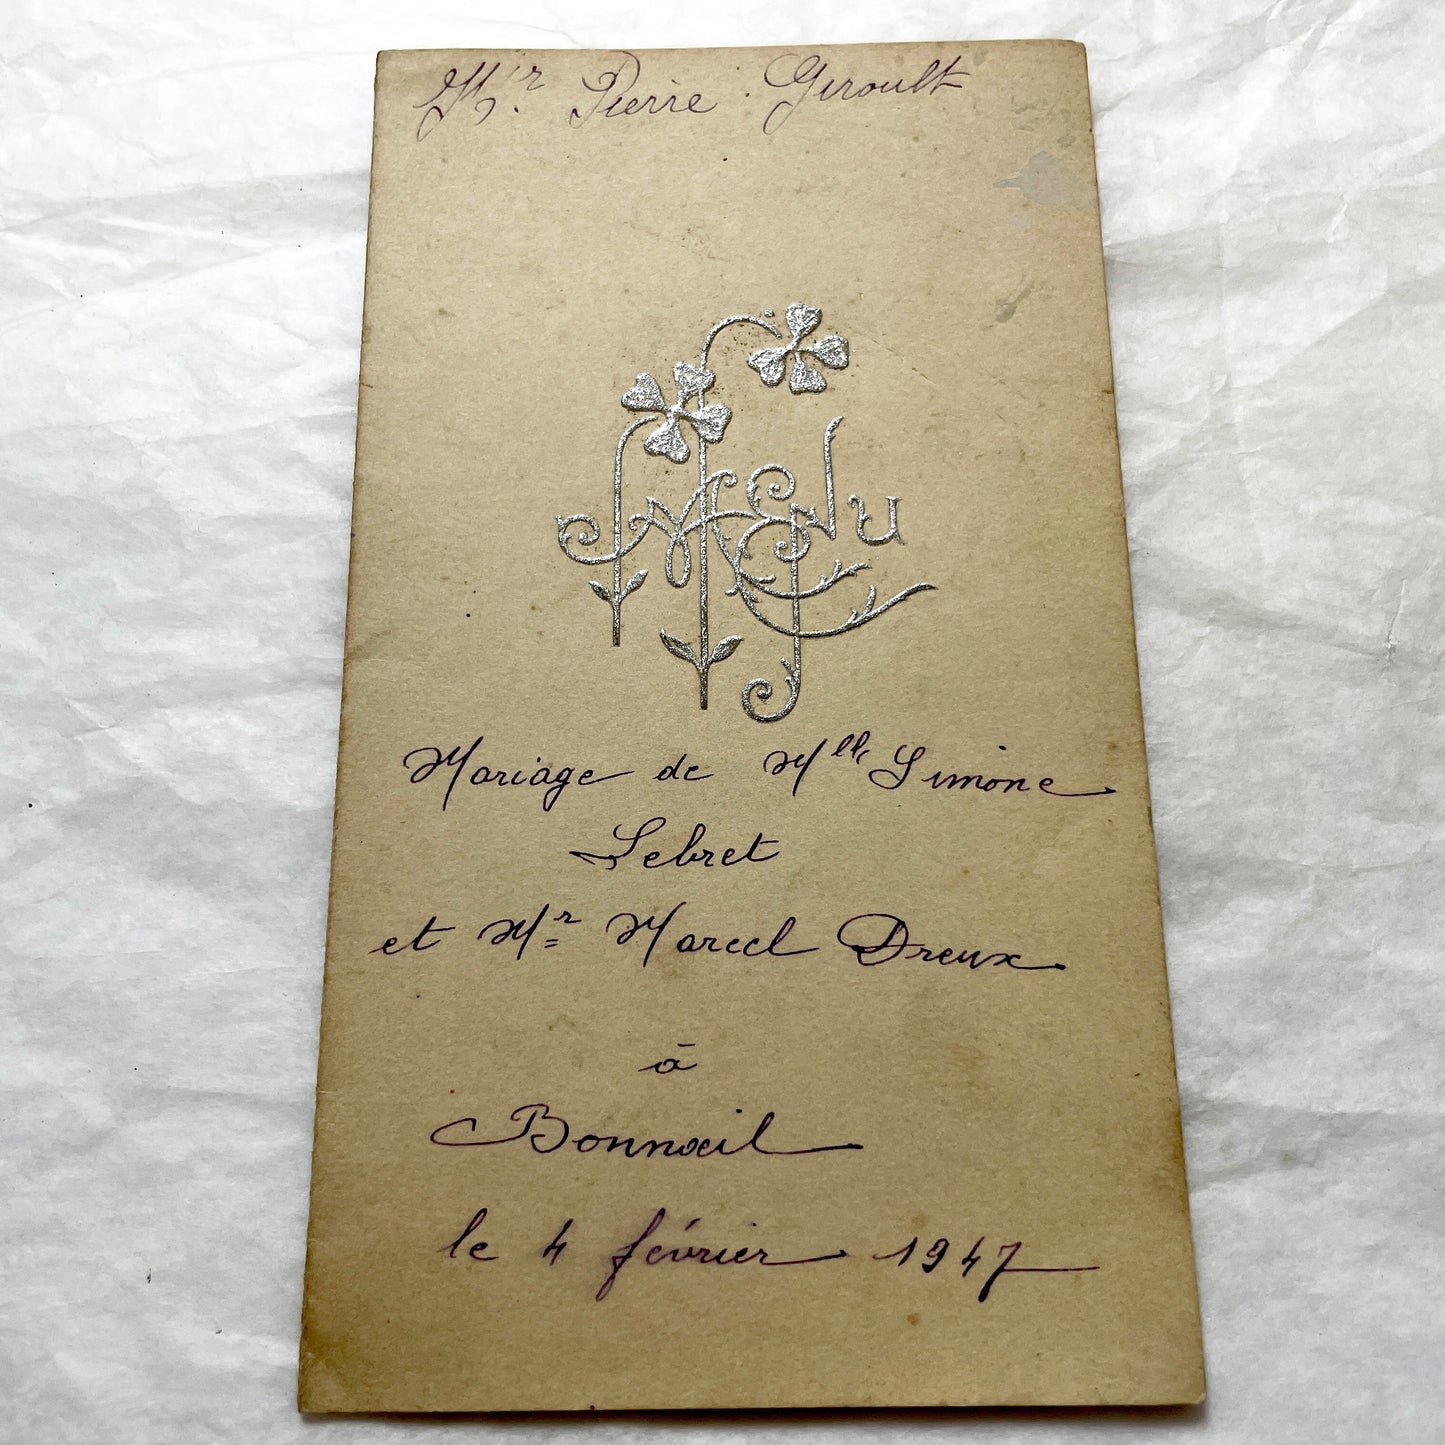 Mr. Pierre Geroult
MENU
Mariage de Mlle Simone
Lebret
et Mr Marcel Dreux
à
Bonnœil
le 4 février 1947